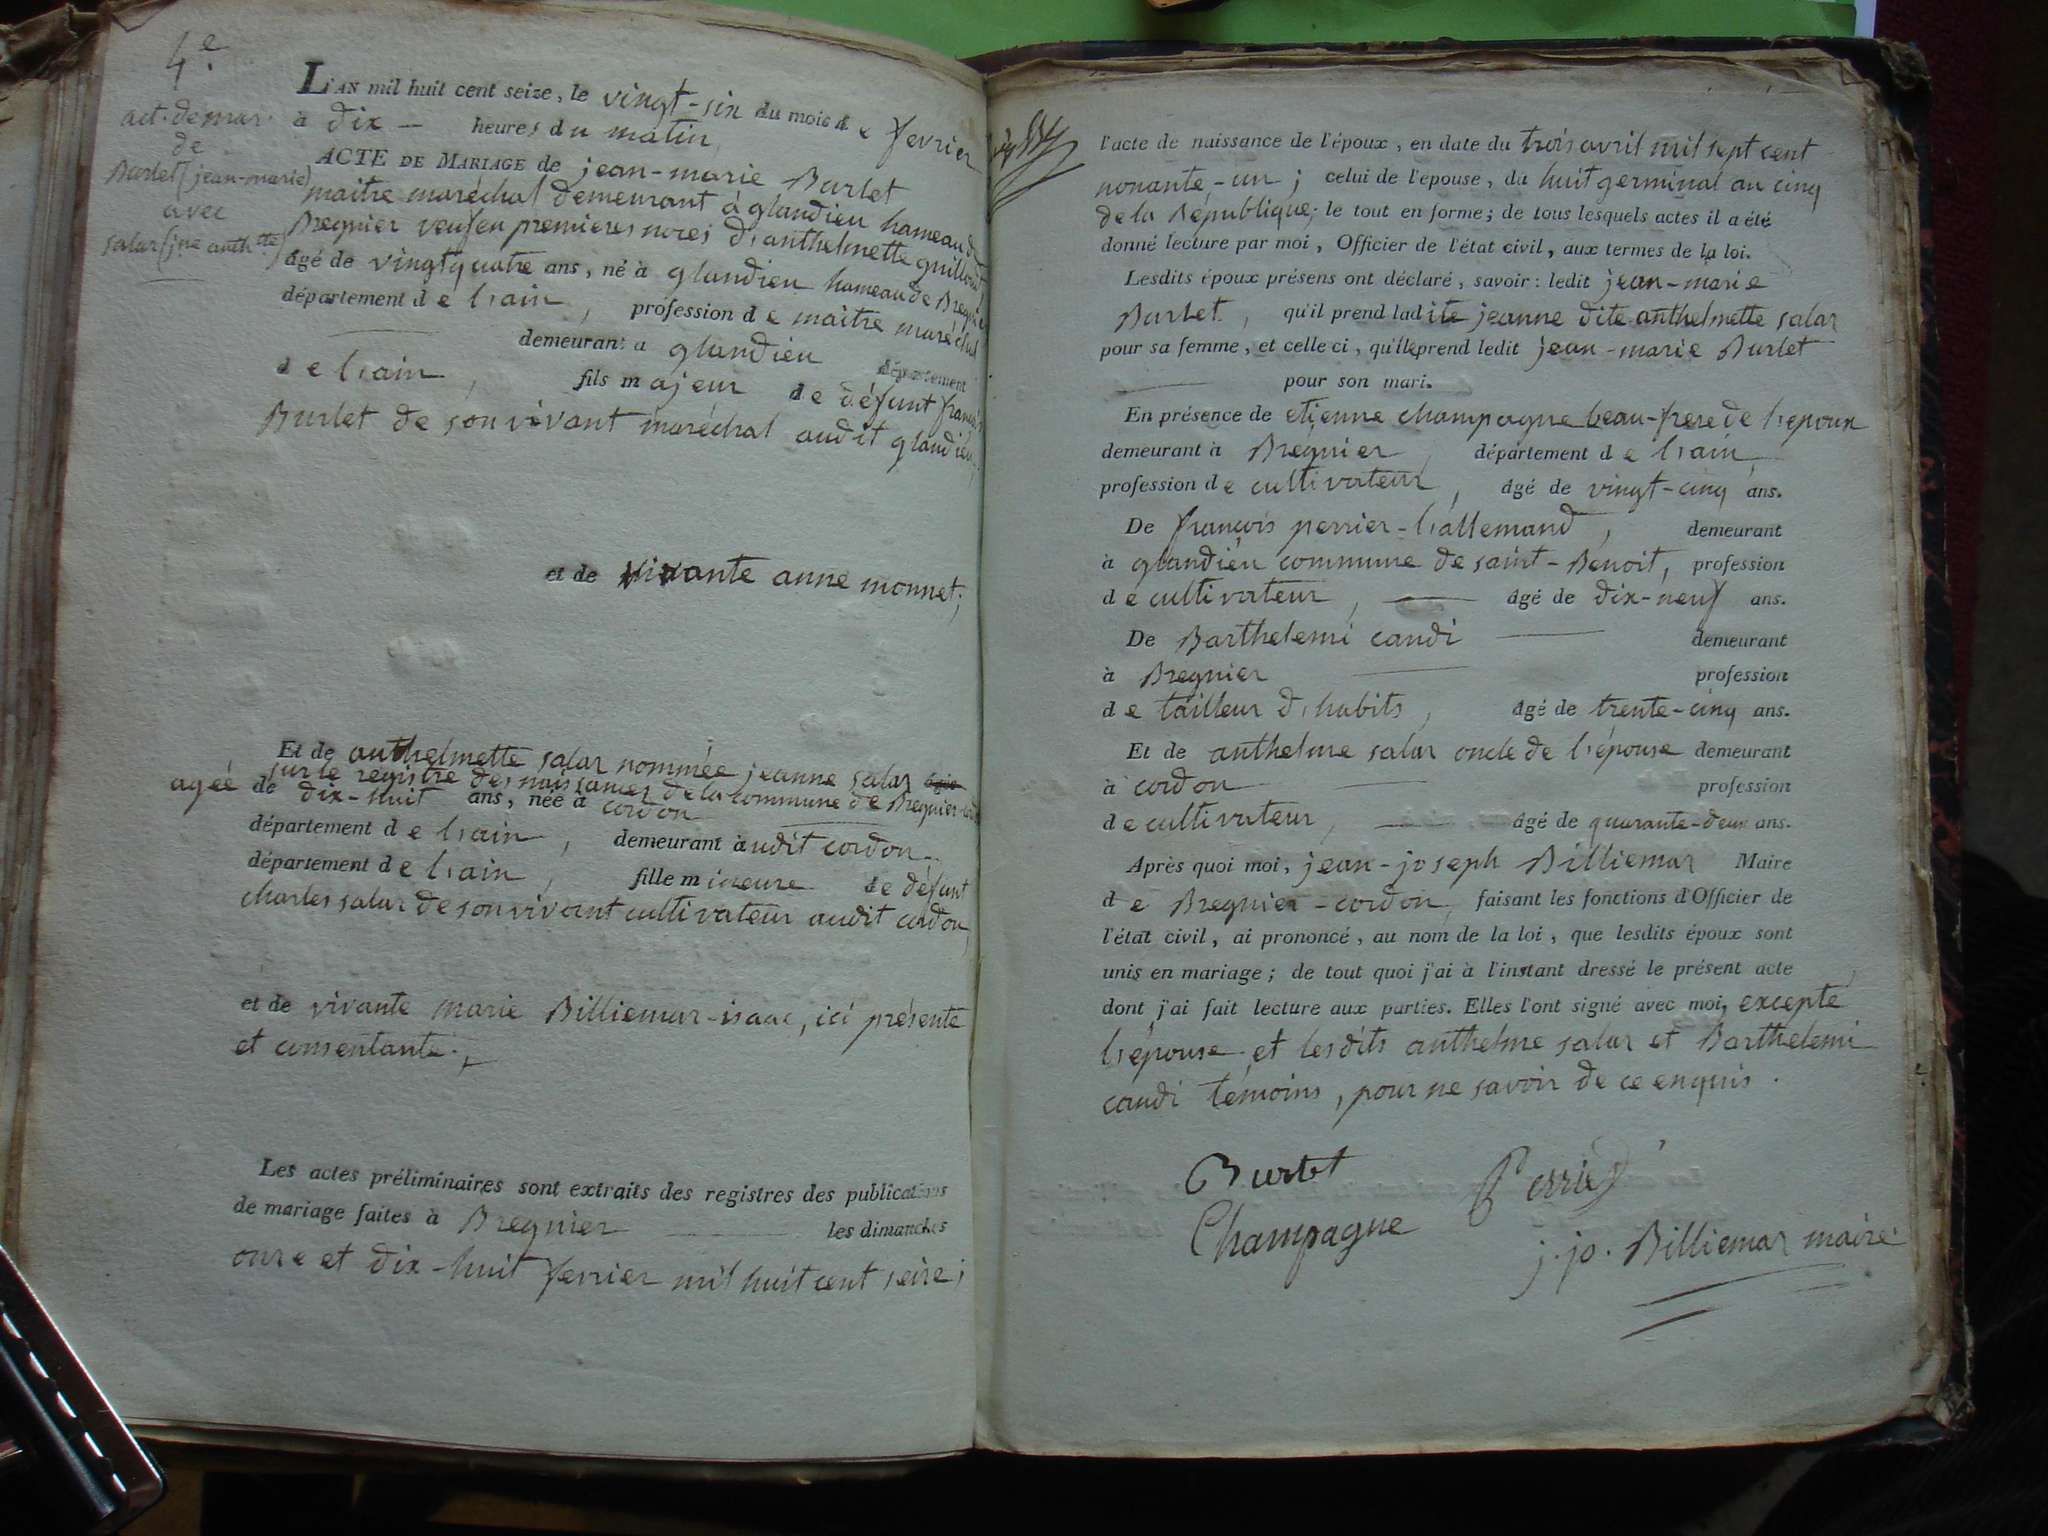 4.e
act. de mar.
de
Burlet (jean-marie)
avec
salar (jne anthtte)
L'AN mil huit cent seize, le vingt-six du mois de fevrier
à dix heures du matin,
ACTE DE MARIAGE de jean-marie Burlet
maitre maréchal demeurant à glandieu hameau de
Bregnier veuf en premieres noces d'anthelmette
agé de vingtquatre ans, né à glandieu hameau de Bregnier
département de l'ain, profession de maitre maréchal
demeurant a glandieu département
de l'ain, fils majeur de défunt françois
Burlet de son vivant maréchal audit glandieu,
et de vivante anne monnet;
Et de anthelmette salar nommée jeanne salar
sur le registre des naissances de la commune de Bregnier-cordon
agée de dix-huit ans, née à cordon
département de l'ain, demeurant audit cordon
département de l'ain, fille mineure de défunt
charles salar de son vivant cultivateur audit cordon,
et de vivante marie Billiemar-isaac, ici présente
et consentante.
Les actes préliminaires sont extraits des registres des publications
de mariage faites à Bregnier les dimanches
onze et dix-huit fevrier mil huit cent seize;
l'acte de naissance de l'époux, en date du trois avril mil sept cent
nonante-un; celui de l'epouse, du huit germinal an cinq
de la République; le tout en forme; de tous lesquels actes il a été
donné lecture par moi, Officier de l'état civil, aux termes de la loi.
Lesdits époux présens ont déclaré, savoir: ledit jean-marie
Burlet, qu'il prend ladite jeanne dite anthelmette salar
pour sa femme, et celle ci, qu'lleprend ledit jean-marie Burlet
pour son mari.
En présence de etienne champagne beau-frere de l'epoux
demeurant à Bregnier, département de l'ain,
profession de cultivateur, âgé de vingt-cinq ans.
De françois perrier-l'allemand, demeurant
à glandieu commune de saint-Benoit, profession
de cultivateur, âgé de dix-neuf ans.
De Barthelemi caudi demeurant
à Bregnier profession
de tailleur d'habits, âgé de trente-cinq ans.
Et de anthelme salar oncle de l'épouse demeurant
à cordon profession
de cultivateur, âgé de quarante-deux ans.
Après quoi moi, jean-joseph Billiemar Maire
de Bregnier-cordon, faisant les fonctions d'Officier de
l'état civil, ai prononcé, au nom de la loi, que lesdits époux sont
unis en mariage; de tout quoi j'ai à l'instant dressé le présent acte
dont j'ai fait lecture aux parties. Elles l'ont signé avec moi, excepté
l'épouse et lesdits anthelme salar et Barthelemi
caudi témoins, pour ne savoir de ce enquis.
Burlet Perrier
Champagne
j. jo. Billiemar maire